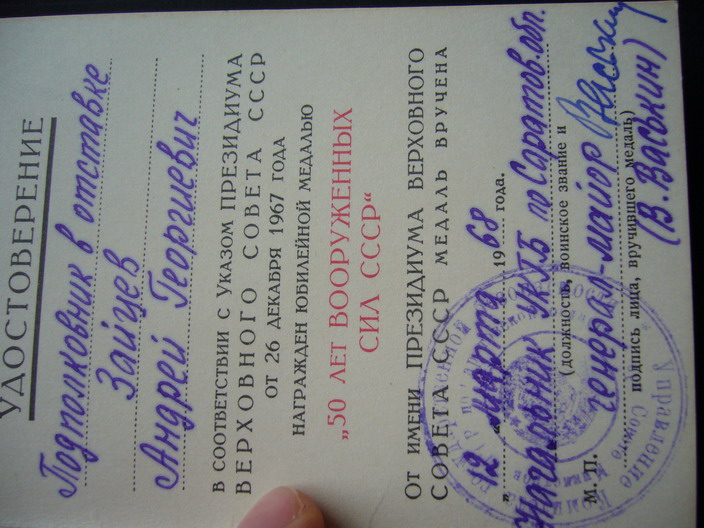 УДОСТОВЕРЕНИЕ
Подполковник в отставке
Зайцев
Андрей Георгиевич
В СООТВЕТСТВИИ С УКАЗОМ ПРЕЗИДИУМА
ВЕРХОВНОГО СОВЕТА СССР
ОТ 26 ДЕКАБРЯ 1967 ГОДА
НАГРАЖДЕН ЮБИЛЕЙНОЙ МЕДАЛЬЮ
„50 ЛЕТ ВООРУЖЕННЫХ
СИЛ СССР“
ОТ ИМЕНИ ПРЕЗИДИУМА ВЕРХОВНОГО
СОВЕТА СССР МЕДАЛЬ ВРУЧЕНА
„12“ марта 1968 года.
Начальник УКГБ по Саратов. обл.
(должность, воинское звание и
М. П. генерал-майор
подпись лица, вручившего медаль)
(В. Васькин)
Управление